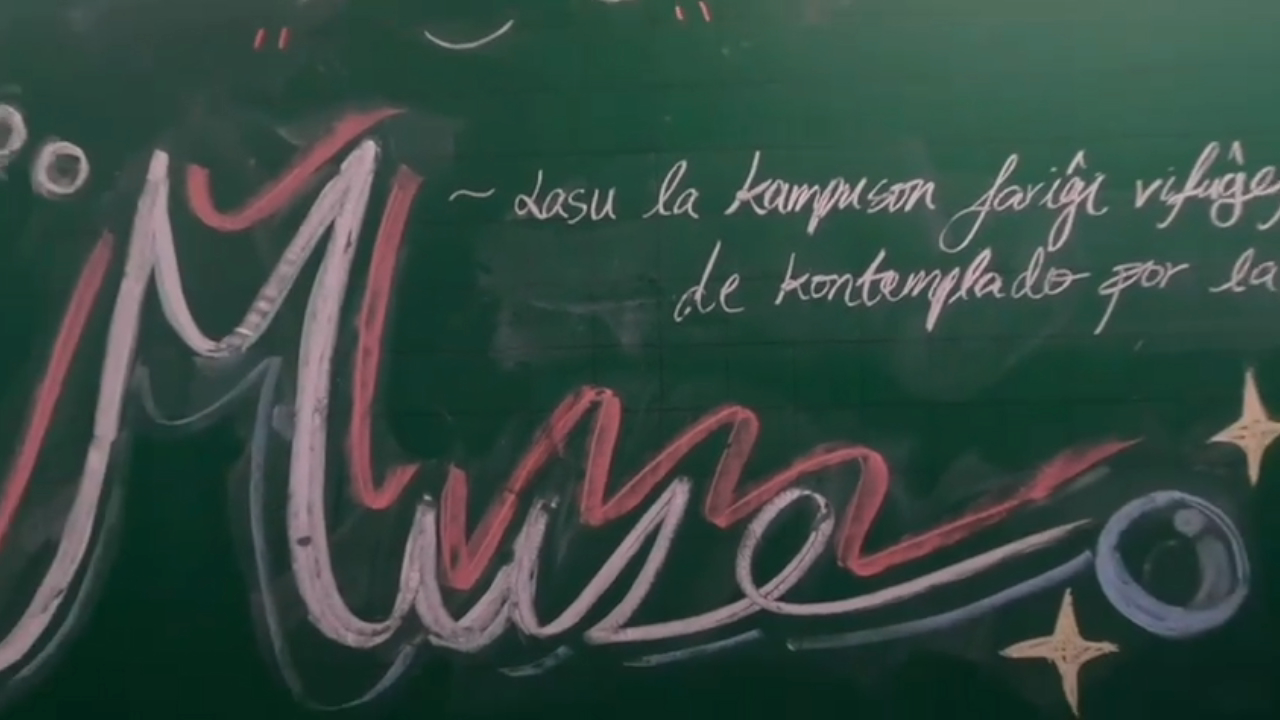 ~ Lasu la kampuson fariĝi rifuĝe
de kontemplado por la
Muse